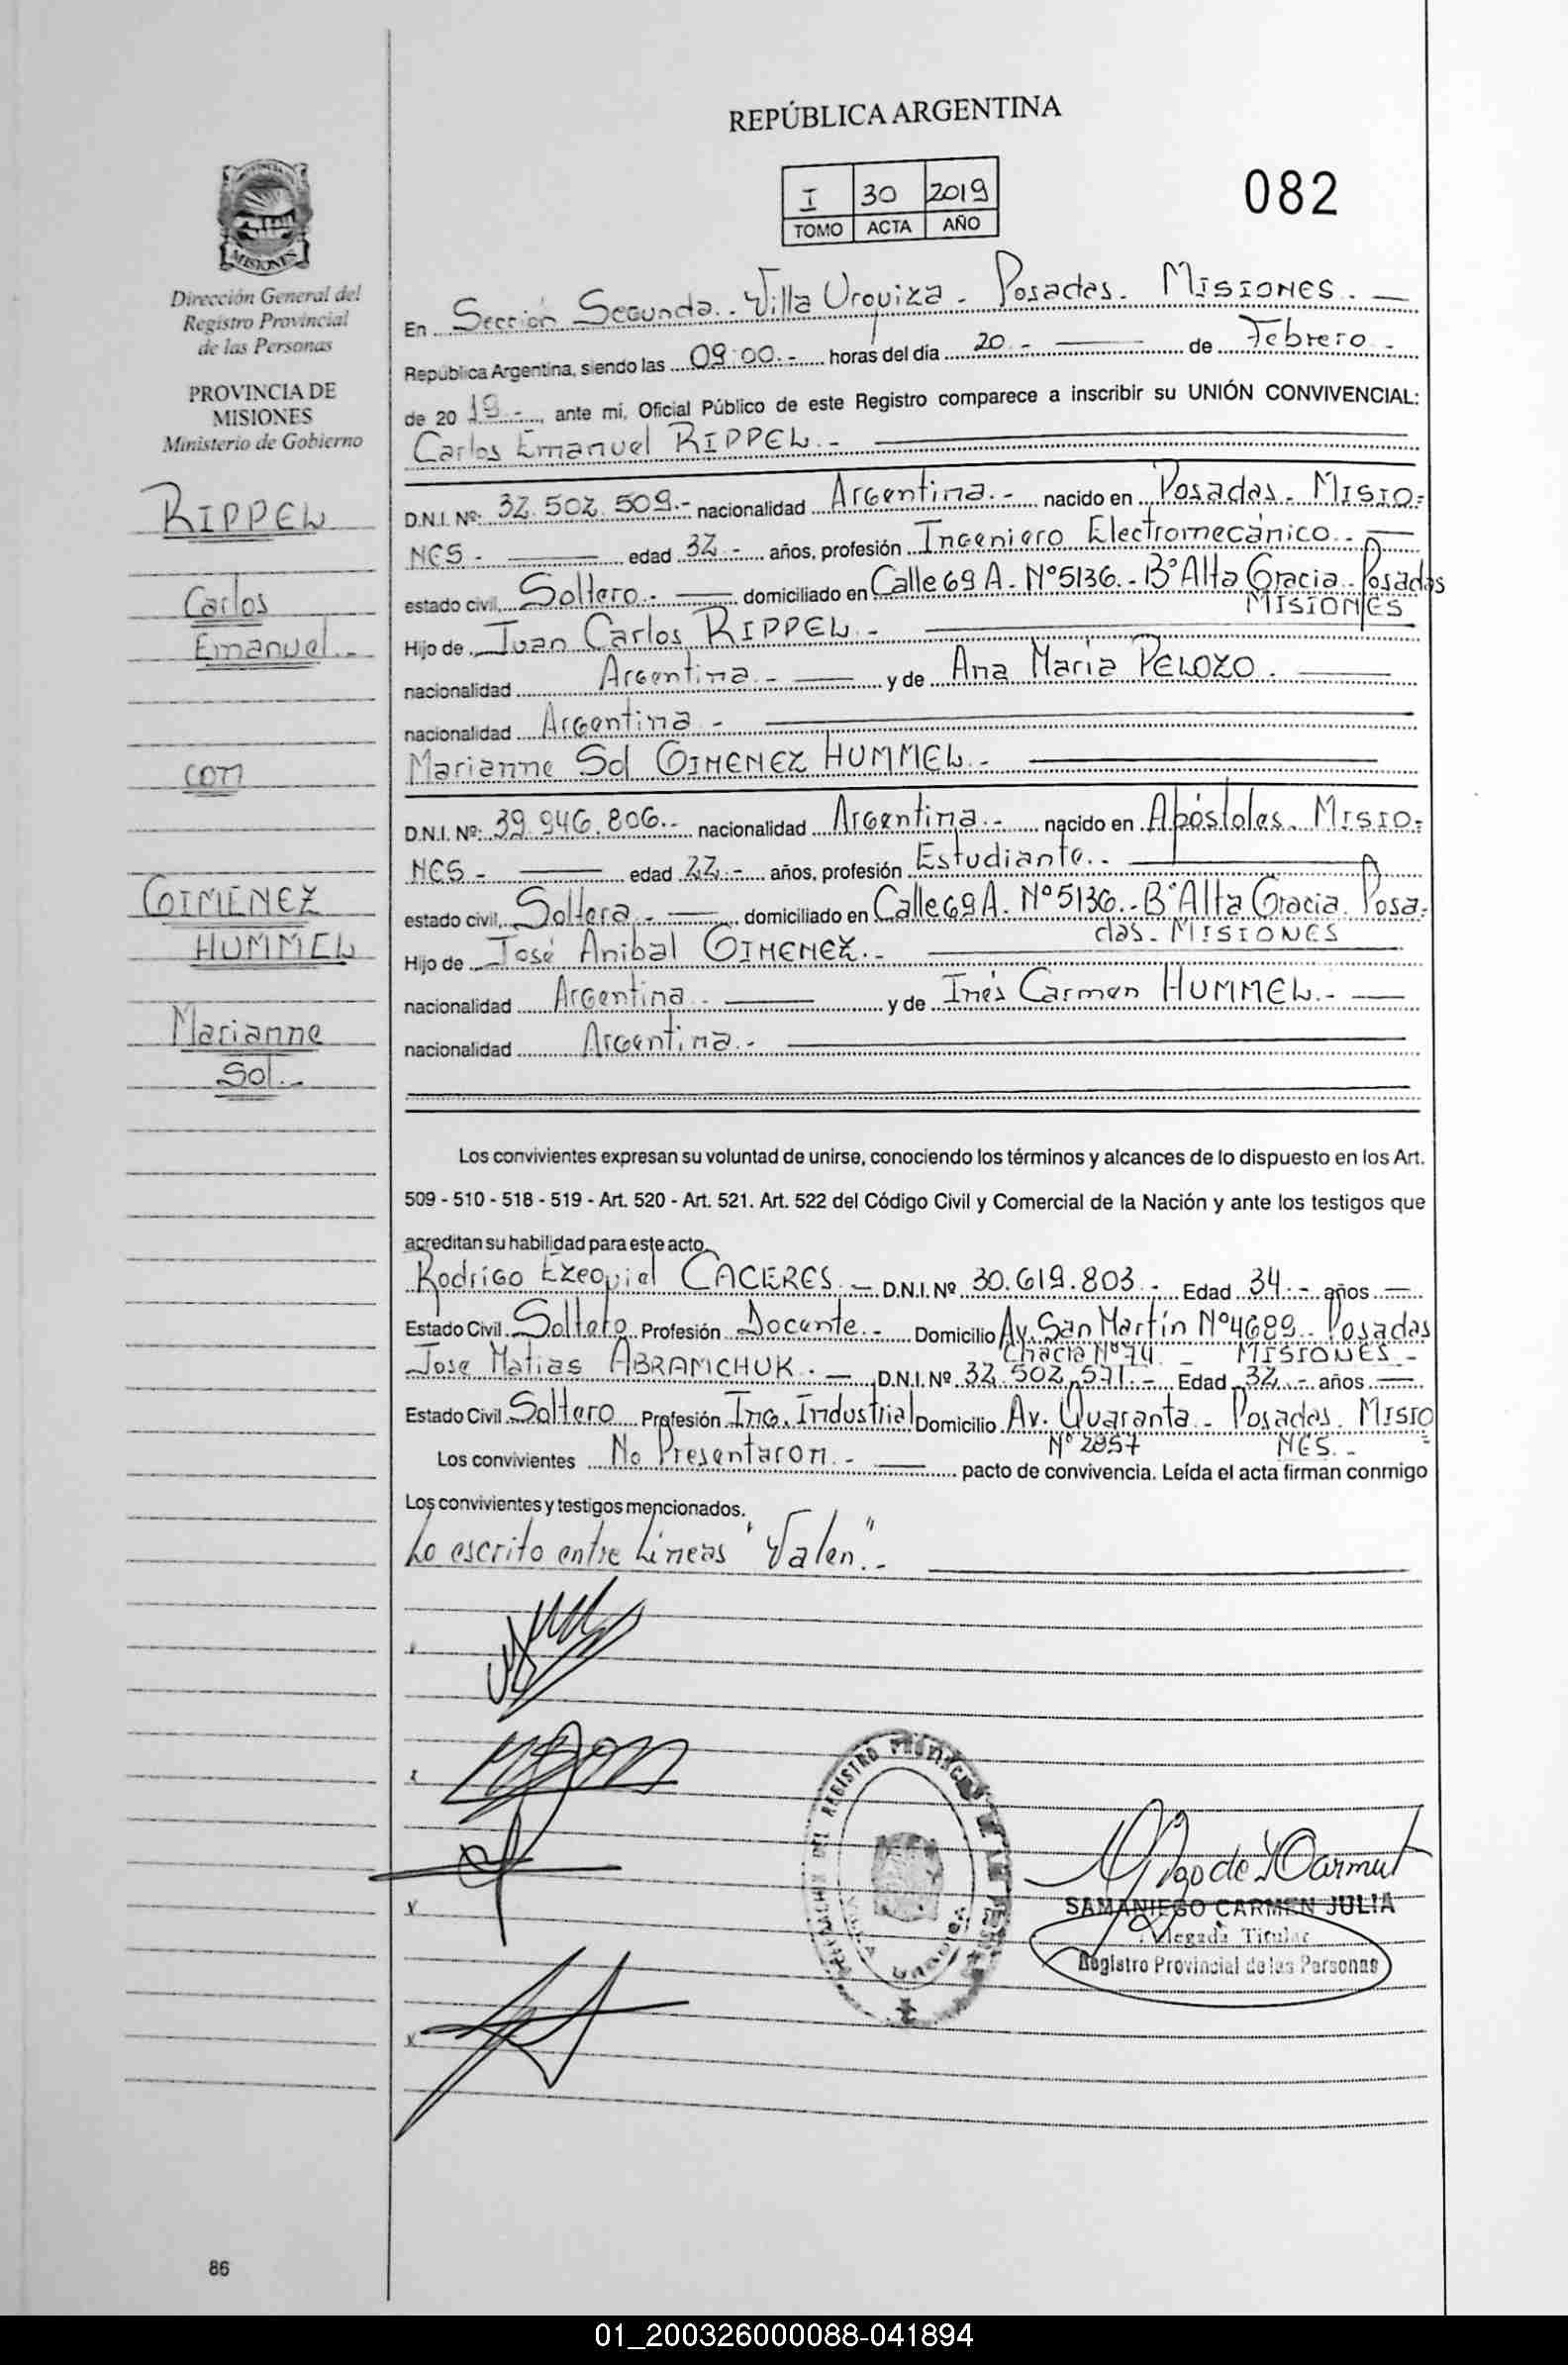 REPÚBLICA ARGENTINA
I 30 2019
TOMO ACTA AÑO
082
MISIONES
Dirección General del
Registro Provincial
de las Personas
PROVINCIA DE
MISIONES
Ministerio de Gobierno
RIPPEL
Carlos
Emanuel.-
con
GIMENEZ
HUMMEL
Marianne
Sol.-
En Sección Segunda.- Villa Urquiza - Posadas - MISIONES.-
República Argentina, siendo las 09:00.- horas del día 20 - de Febrero -
de 20 19.-, ante mí, Oficial Público de este Registro comparece a inscribir su UNIÓN CONVIVENCIAL:
Carlos Emanuel RIPPEL.-
D.N.I. Nº: 32.502.509.- nacionalidad Argentina.- nacido en Posadas - MISIO-
NES - edad 32 - años, profesión Ingeniero Electromecánico.-
estado civil, Soltero.- domiciliado en Calle 69 A - Nº 5136.- Bº Alta Gracia - Posadas
MISIONES
Hijo de Juan Carlos RIPPEL.-
nacionalidad Argentina.- y de Ana María PELOZO.
nacionalidad Argentina -
Marianne Sol GIMENEZ HUMMEL.-
D.N.I. Nº: 39.946.806.- nacionalidad Argentina.- nacido en Apóstoles - MISIO-
NES - edad 22.- años, profesión Estudiante.-
estado civil, Soltera.- domiciliado en Calle 69 A - Nº 5136.- Bº Alta Gracia Posa-
das - MISIONES
Hijo de José Anibal GIMENEZ.-
nacionalidad Argentina - y de Inés Carmen HUMMEL.-
nacionalidad Argentina.-
Los convivientes expresan su voluntad de unirse, conociendo los términos y alcances de lo dispuesto en los Art.
509 - 510 - 518 - 519 - Art. 520 - Art. 521. Art. 522 del Código Civil y Comercial de la Nación y ante los testigos que
acreditan su habilidad para este acto.
Rodrigo Ezequiel CACERES.- D.N.I. Nº 30.619.803 - Edad 34.- años
Estado Civil Soltero Profesión Docente.- Domicilio Av. San Martín Nº 4689.- Posadas
Chacra Nº 74 - MISIONES -
Jose Matias ABRAMCHUK.- D.N.I. Nº 32.502.571.- Edad 32.- años
Estado Civil Soltero Profesión Ing. Industrial Domicilio Av. Quaranta - Posadas. MISIO
Nº 2957 NES.-
Los convivientes No Presentaron.- pacto de convivencia. Leída el acta firman conmigo
Los convivientes y testigos mencionados.
Lo escrito entre Líneas "Valen".-
SAMANIEGO CARMEN JULIA
Delegada Titular
Registro Provincial de las Personas
86
01_200326000088-041894